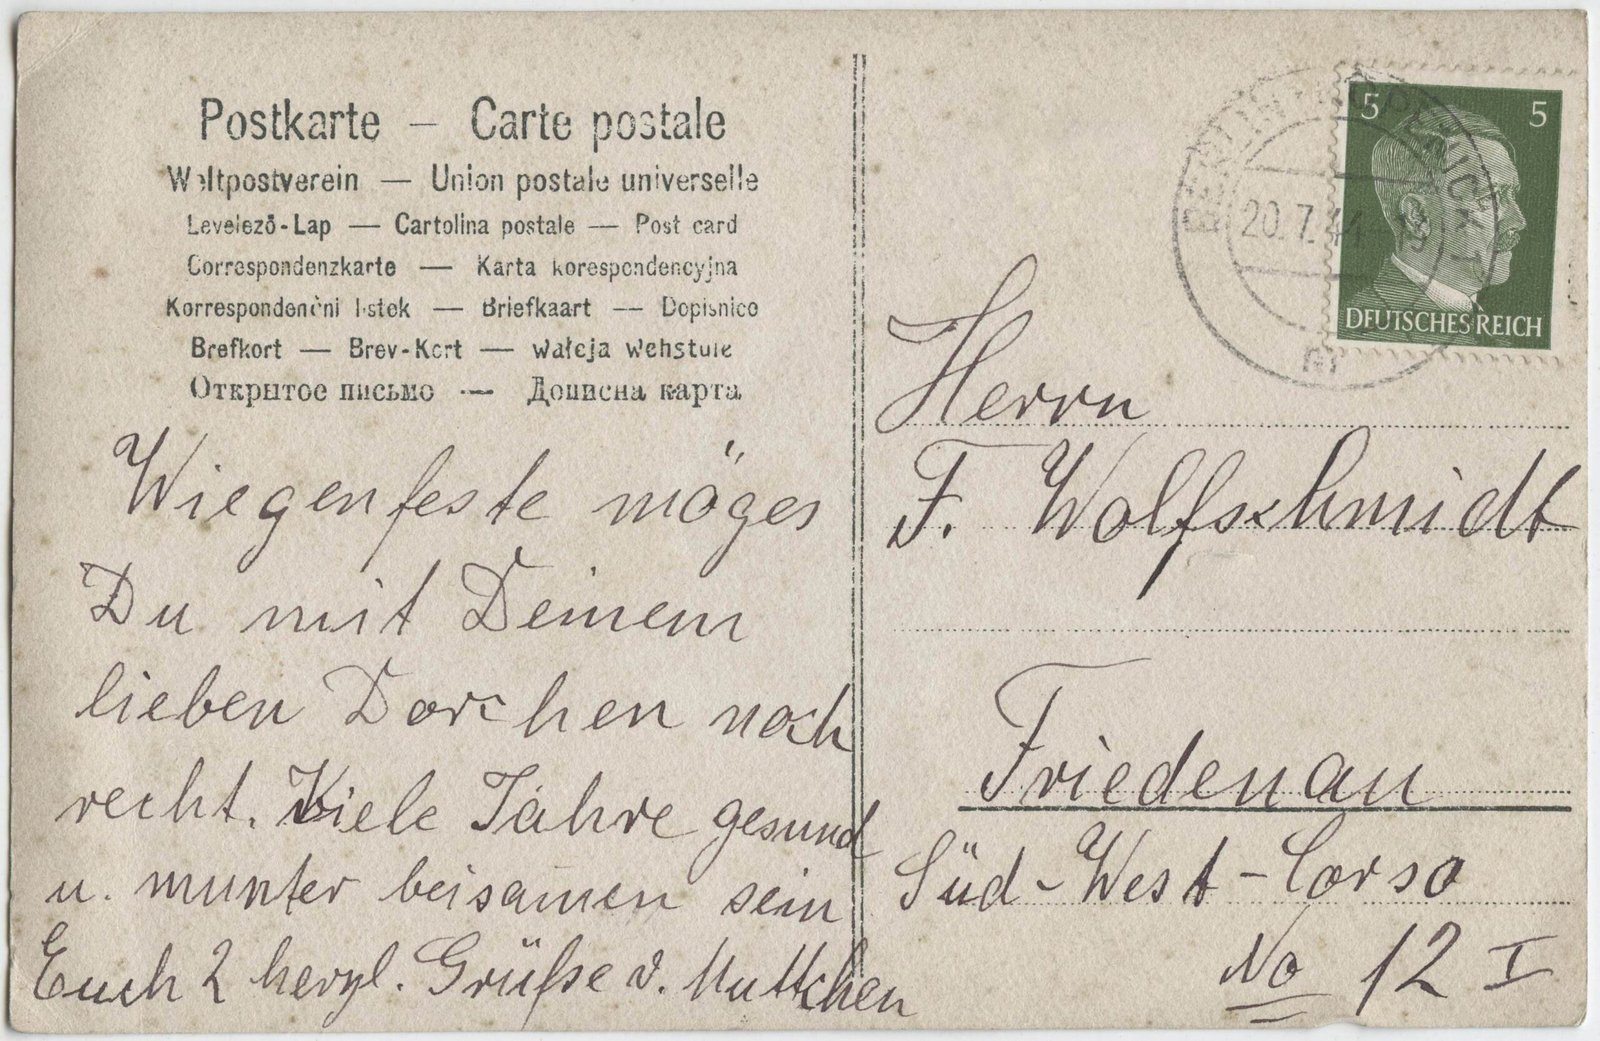 Postkarte — Carte postale
Weltpostverein — Union postale universelle
Levelező-Lap — Cartolina postale — Post card
Correspondenzkarte — Karta korespondencyjna
Korrespondenční listek — Briefkaart — Dopisnice
Brefkort — Brev-Kort —
Открытое письмо — Дописна карта
Wiegenfeste möges
Du mit Deinem
lieben Dorchen noch
recht. Viele Jahre gesund
u. munter beisam̄en sein
Euch 2 herzl. Grüße v. Muttchen
BERLIN-KÖPENICK 1
20.7.44
5 5
DEUTSCHES REICH
Herrn
F. Wolfschmidt
Friedenau
Süd-West-Corso
No 12 I